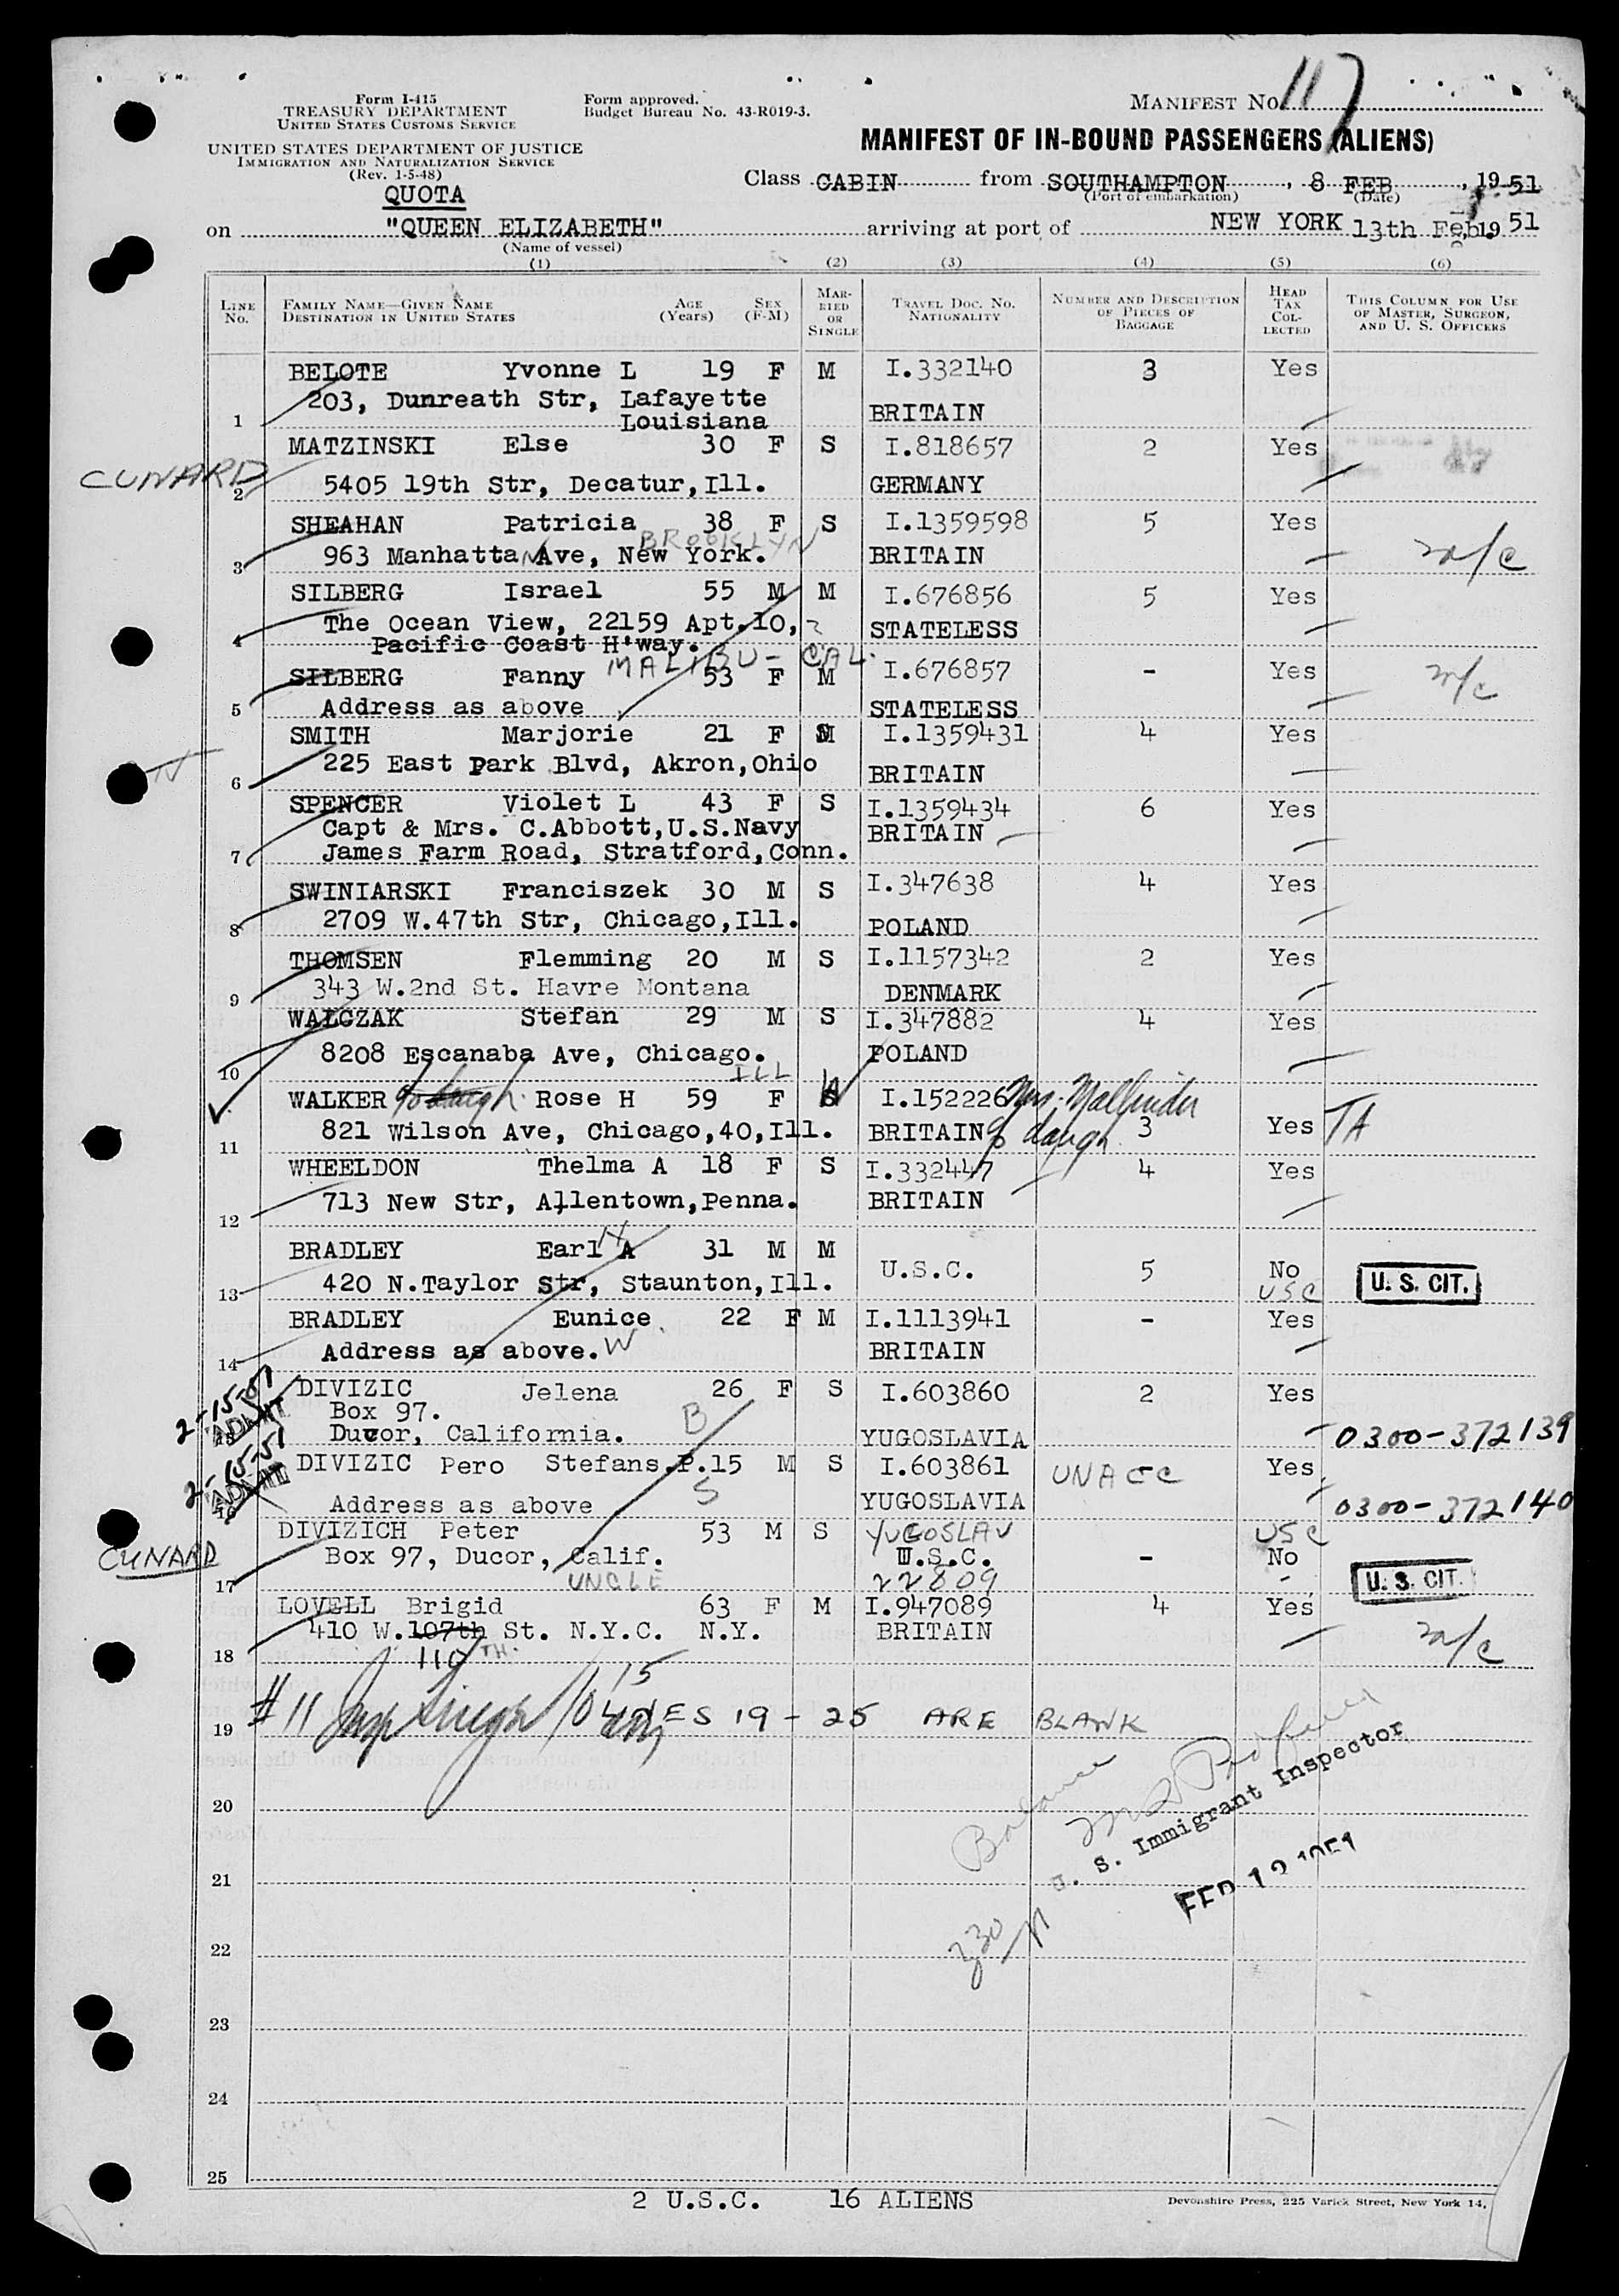 Form I-415
TREASURY DEPARTMENT
UNITED STATES CUSTOMS SERVICE
UNITED STATES DEPARTMENT OF JUSTICE
IMMIGRATION AND NATURALIZATION SERVICE
(Rev. 1-5-48)
QUOTA
Form approved.
Budget Bureau No. 43-R019-3.
MANIFEST No. 117
MANIFEST OF IN-BOUND PASSENGERS (ALIENS)
Class CABIN from SOUTHAMPTON, 8 FEB, 1951
(Port of embarkation) (Date)
on "QUEEN ELIZABETH" arriving at port of NEW YORK 13th Feb, 1951
(Name of vessel)
(1) (2) (3) (4) (5) (6)
LINE No. FAMILY NAME—GIVEN NAME DESTINATION IN UNITED STATES AGE (Years) SEX (F-M) MARRIED OR SINGLE TRAVEL DOC. NO. NATIONALITY NUMBER AND DESCRIPTION OF PIECES OF BAGGAGE HEAD TAX COLLECTED THIS COLUMN FOR USE OF MASTER, SURGEON, AND U. S. OFFICERS
BELOTE Yvonne L 19 F M I.332140 3 Yes
203, Dunreath Str, Lafayette
1 Louisiana BRITAIN
MATZINSKI Else 30 F S I.818657 2 Yes
CUNARD
2 5405 19th Str, Decatur, Ill. GERMANY
SHEAHAN Patricia 38 F S I.1359598 5 Yes
BROOKLYN
3 963 Manhattan Ave, New York. BRITAIN n/c
SILBERG Israel 55 M M I.676856 5 Yes
The Ocean View, 22159 Apt.10, STATELESS
4 Pacific Coast H'way.
MALIBU - CAL.
SILBERG Fanny 53 F M I.676857 - Yes n/c
5 Address as above STATELESS
SMITH Marjorie 21 F M I.1359431 4 Yes
6 225 East Park Blvd, Akron, Ohio BRITAIN
SPENCER Violet L 43 F S I.1359434 6 Yes
Capt & Mrs. C.Abbott, U.S.Navy BRITAIN
7 James Farm Road, Stratford, Conn.
SWINIARSKI Franciszek 30 M S I.347638 4 Yes
8 2709 W.47th Str, Chicago, Ill. POLAND
THOMSEN Flemming 20 M S I.1157342 2 Yes
9 343 W.2nd St. Havre Montana DENMARK
WALCZAK Stefan 29 M S I.347882 4 Yes
10 8208 Escanaba Ave, Chicago. POLAND
ILL
WALKER Rose H 59 F I.152226 Mrs. Mallinder
11 821 Wilson Ave, Chicago, 40, Ill. BRITAIN daugh 3 Yes TA
WHEELDON Thelma A 18 F S I.332447 4 Yes
12 713 New Str, Allentown, Penna. BRITAIN
H
BRADLEY Earl A 31 M M U.S.C. 5 No
13 420 N.Taylor Str, Staunton, Ill. USC U. S. CIT.
BRADLEY Eunice 22 F M I.1113941 - Yes
14 Address as above. W BRITAIN
2-15-51 ADMIT
DIVIZIC Jelena 26 F S I.603860 2 Yes
Box 97. B
15 Ducor, California. YUGOSLAVIA 0300-372139
2-15-51 ADMIT
DIVIZIC Pero Stefans.P. 15 M S I.603861 UNACC Yes
16 Address as above S YUGOSLAVIA 0300-372140
DIVIZICH Peter 53 M S YUGOSLAV USC
Box 97, Ducor, Calif. U.S.C. - No
CUNARD
17 UNCLE 22809 - U. S. CIT.
LOVELL Brigid 63 F M I.947089 4 Yes
410 W.107th St. N.Y.C. N.Y. BRITAIN n/c
18 110 TH.
19 #11 LINES 19 - 25 ARE BLANK
Balance
U. S. Immigrant Inspector
20
FEB 1951
21
22
330
23
24
25
2 U.S.C. 16 ALIENS
Devonshire Press, 225 Varick Street, New York 14,